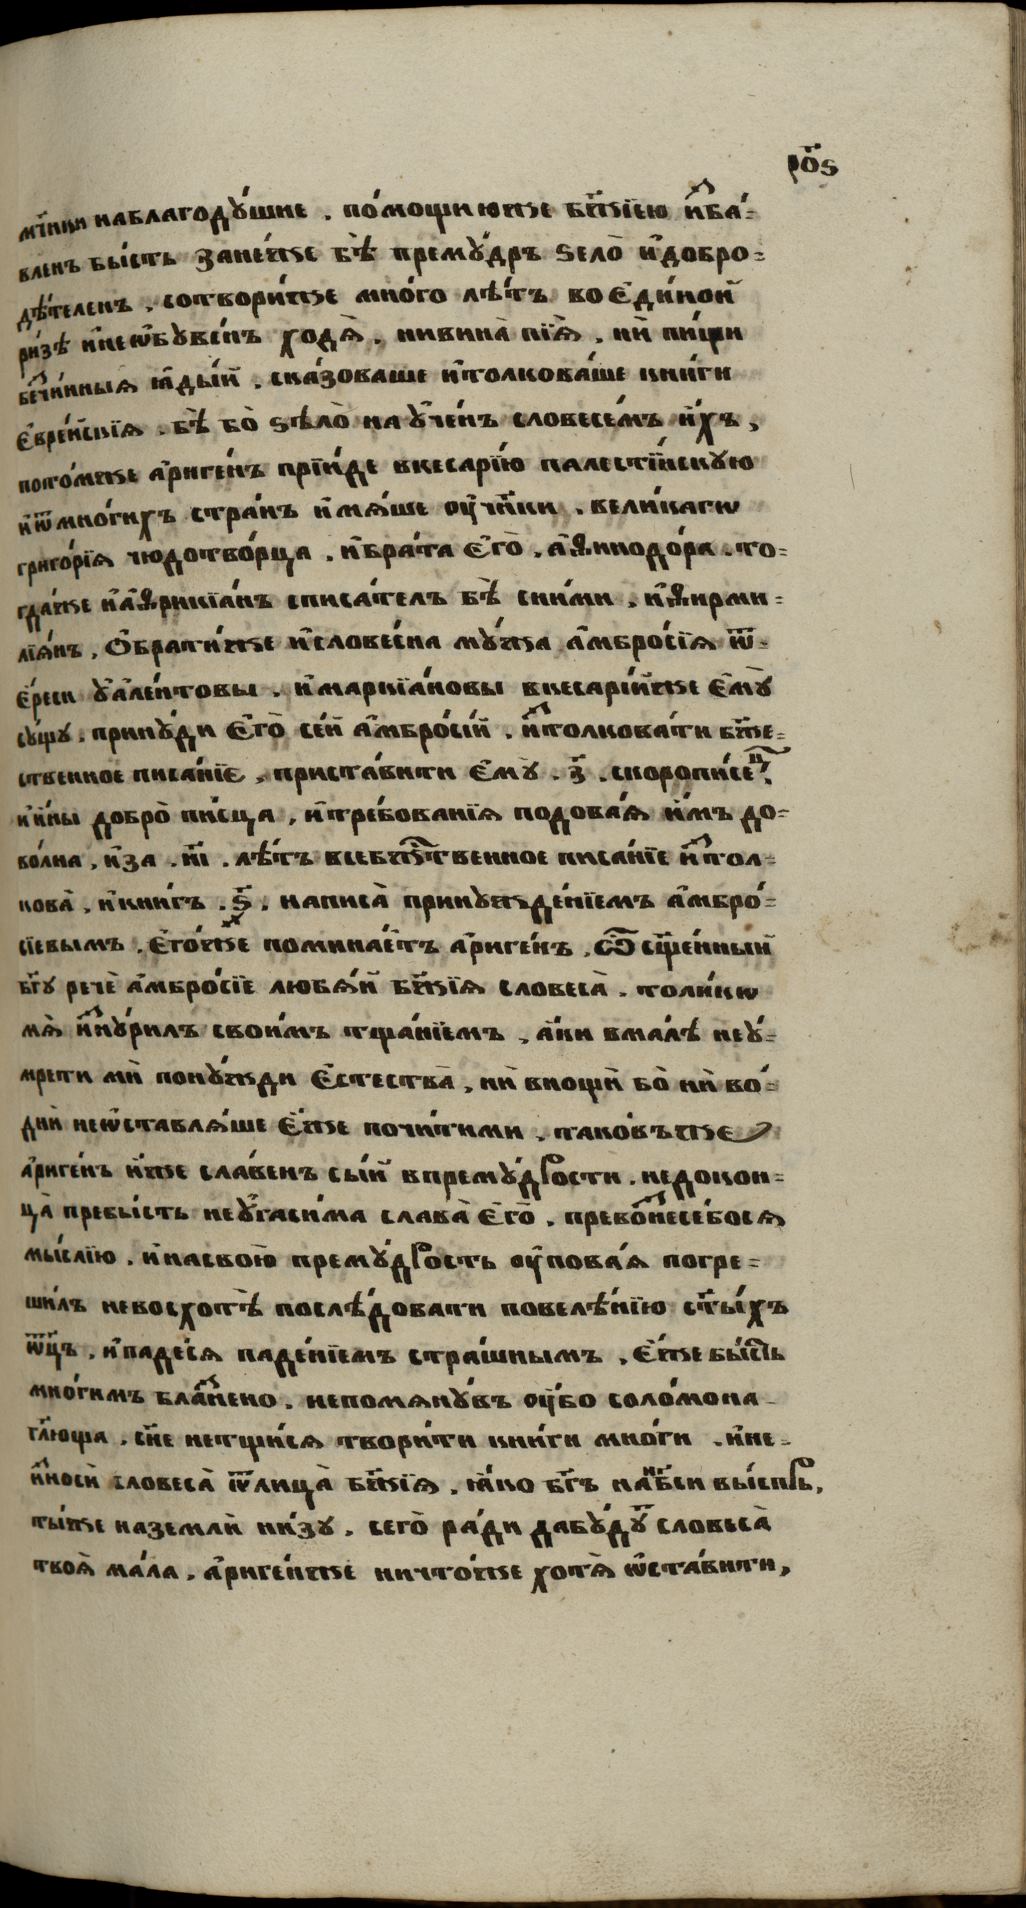 ро҃ѕ
мч҃нки наблагодꙋ́шие . по́мощиюже бж҃їею и҆зба́-
вленъ бы́сть зане́же бѣ̀ премꙋ́дръ ѕело̀ и҆добро-
дѣ́теленъ . сотвори́же мно́го лѣ́тъ воє҆ди́ной
ри́зѣ и҆неѡ҆бꙋве́нъ ходѧ̀ . нивина̀ пїѧ̀ . нѝ пи́щи
бе҆счи́нныѧ ꙗ҆ды́й . ска́зоваше и҆толкова́ше кни́ги
є҆вре́йскїѧ . бѣ̀ бо̀ ѕѣло̀ наꙋ҆че́нъ словесе́мъ и҆́хъ ,
пото́мже а҆риге́нъ прїи́де вкесарі́ю палести́нскꙋю
и҆ѿмно́гихъ стра́нъ и҆мѧ́ше ᲂу҆ч҃нки . вели́кагѡ
григо́рїѧ чюдотво́рца . и҆бра́та є҆го̀ . а҆ѳинодо́ра . то-
гда́же и҆а҆ѳрикїа́нъ списа́телъ бѣ̀ сни́ми . и҆ѳирми-
лїа́нъ . Ѻ҆брати́же и҆слове́сна мꙋ́жа а҆мбро́сїѧ ѿ-
є҆́реси ꙋ҆але́нтовы . и҆маркїа́новы вкесарі́йже є҆мꙋ̀
сꙋ́щꙋ . принꙋ́ди є҆го̀ се́й а҆мбро́сїй . и҆столкова́ти бж҃е-
ственное писа́нїе , приста́вити є҆мꙋ̀ . з҃ . скоропи́сець .
и҆и҆́ны добро̀ пи́сца , и҆тре́бованїѧ подова́ѧ и҆̀мъ до-
во́лна . и҆за . и҃і . лѣ́тъ всебж҃ственное писа́нїе и҆стол-
кова̀ . и҆кни́гъ . ѕ҃ . написа̀ принꙋжде́нїемъ а҆мбро́-
сїевымъ . є҆го́же помина́етъ а҆риге́нъ . Ѽ сщ҃е́нный
бг҃ꙋ речѐ а҆мбро́сїе любѧ́й бж҃їѧ словеса̀ . толи́кѡ
мѧ̀ и҆знꙋри́лъ свои́мъ тща́нїемъ , а҆́ки вма́лѣ неꙋ҆-
мрети мѝ понꙋ́жди є҆стества̀ , нѝ внощѝ бо̀ нѝ во́-
днѝ неѡ҆ставлѧ́ше є҆́же почи́тими . тако́въже
а҆риге́нъ и҆́же сла́венъ сы́й впремꙋ́дрости . недокон-
ца̀ пребы́сть неꙋ҆гаси́ма слава̀ є҆го̀ . превознесе́босѧ
мы́слїю . и҆насвою̀ премꙋ́дрость ᲂу҆пова́ѧ погре-
ши́лъ невосхотѣ̀ послѣ́довати повелѣ́нїю ст҃ы́хъ
ѡ҆ц҃ъ . и҆паде́сѧ паде́нїемъ стра́шнымъ . є҆́же бы́сть
мно́гимъ блазне́но . непомѧнꙋ́въ ᲂу҆́бо соло́мона
гл҃юща . сн҃е нетщи́сѧ твори́ти кни́ги мно́ги . и҆не-
и҆зносѝ словеса̀ ѿлица̀ бж҃їѧ . ꙗ҆́ко бг҃ъ нанб҃си вы́спрь ,
ты́же наземлѝ ни́зꙋ . сего̀ ра́ди дабꙋ́дꙋтъ словеса̀
твоѧ̀ ма́ла . а҆риге́нже ничто́же хотѧ̀ ѡ҆ста́вити ,